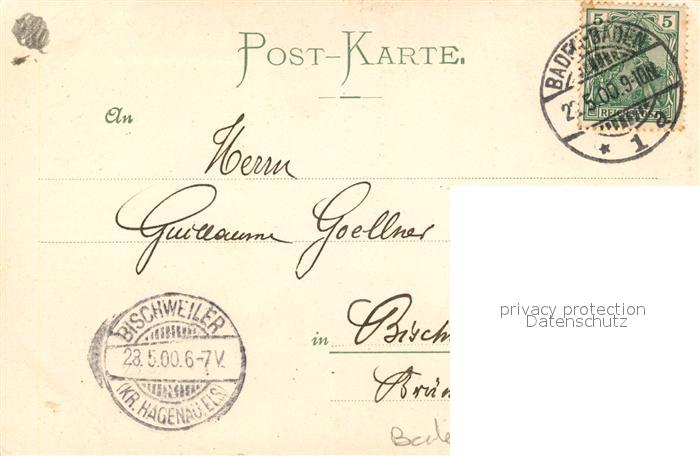 POST-KARTE.
5 5
BADEN-BADEN
5.00.9-10N.
* 1 a
REICHSPOST
An
Herrn
Guillaume Goellner
in Bisch
Brü
BISCHWEILER
23.5.00.6-7V.
(KR. HAGENAU ELS)
privacy protection
Datenschutz
Bade